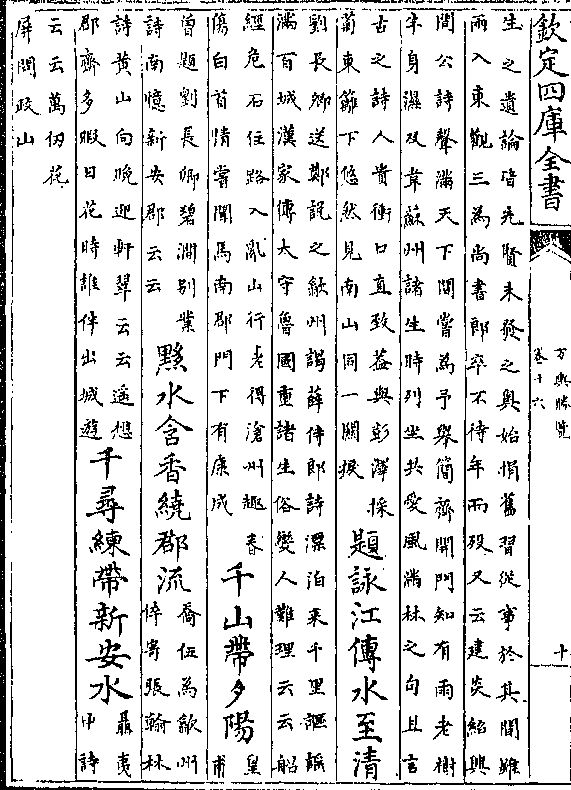 欽定四庫全書
方輿勝覽
卷十六
十
生之遺論皆先賢未發之奧始悁舊習從事於其間雖
雨入東觀三為尚書郎卒不待年而歿又云建炎紹興
間公詩聲滿天下間嘗為予舉簡齋開門知有雨老樹
半身濕及韋蘇州諸生時列坐共愛風滿林之句且言
古之詩人貴衝口直致蓋與彭澤採
菊東籬下悠然見南山同一關捩
題詠江傳水至清
劉長卿送鄭說之歙州謁薛侍郎詩漂泊來千里謳謠
滿百城漢家傳太守魯國重諸生俗變人難理云云船
經危石住路入亂山行老得滄州趣春
傷白首情嘗聞馬南郡門下有康成
千山帶夕陽
皇甫
曾題劉長卿碧澗别業
詩南憶新安郡云云
黟水含香繞郡流
喬伍為歙州
倅寄張翰林
詩黄山向晚迎軒翠云云遥想
郡齋多暇日花時誰伴出城遊
千尋練帶新安水
聶夷
中詩
云云萬仞花
屏問政山